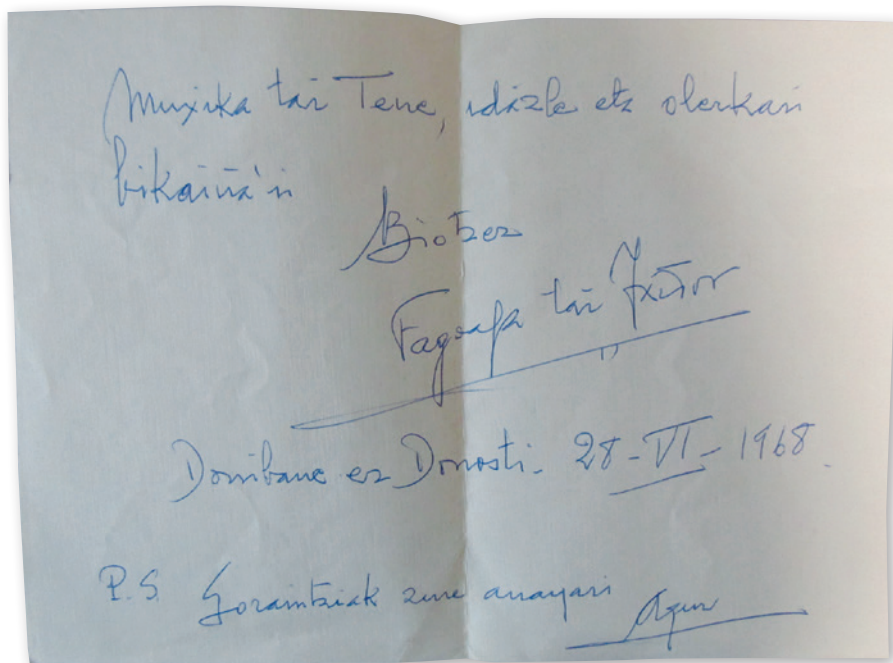 Muxika tar̄ Tene, idazle eta olerkari
bikaiña'ri
Biotzez
Fagoaga tar̄ Ixidor
Donibane ez Donosti - 28 - VI - 1968.
P.S. Goraintziak zure anayari
Agur